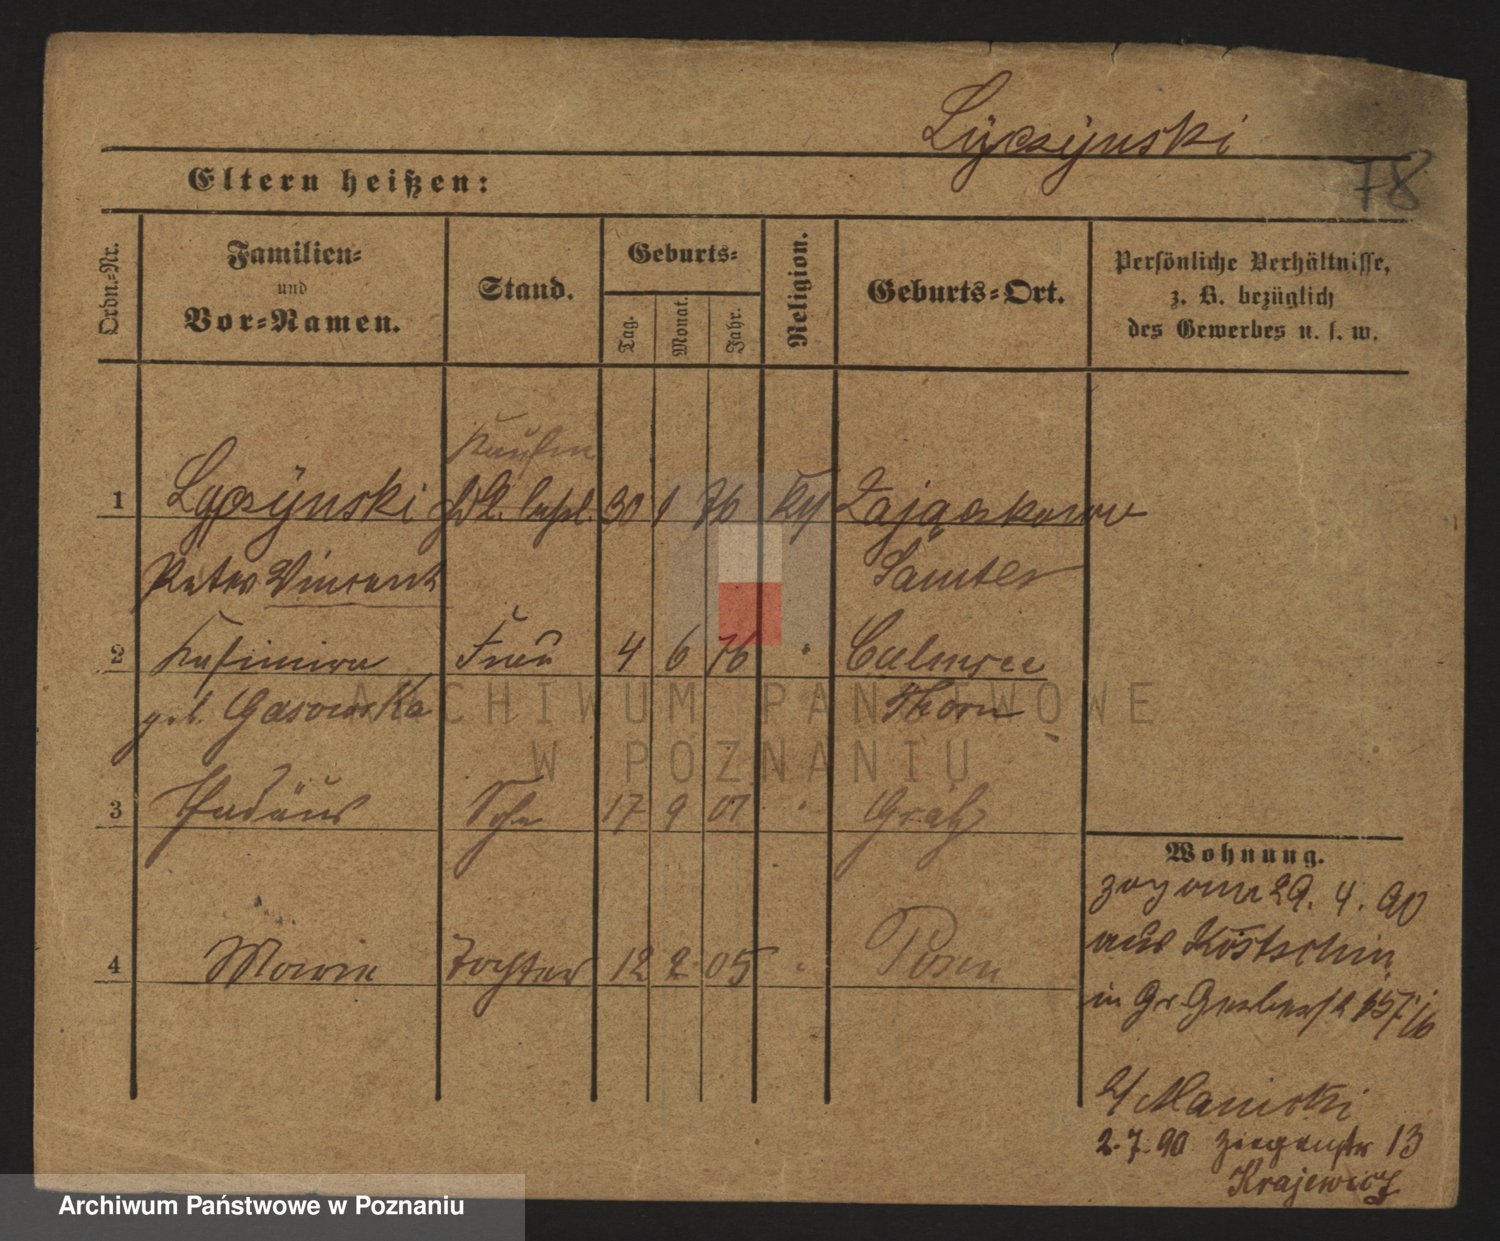 Lyczynski
78
Eltern heißen:
Ordn.-Nr.
Familien-
und
Vor-Namen.
Stand.
Geburts-
Tag.
Monat.
Jahr.
Religion.
Geburts-Ort.
Persönliche Verhältnisse,
z. B. bezüglich
des Gewerbes u. s. w.
Kaufm
1 Lyczynski 30 1 76 Zajączkowo
Peter Vincent Samter
2 Kasimira Frau 4 6 76 " Culmsee
geb. Gasowska Thorn
3 Thadäus Sohn 17 9 01 " Grätz
4 Marie Tochter 12 2 05 " Posen
Wohnung.
zog am 29. 4. 90
aus Kostschin
in Gr Gerberst
b/ Manicki
2.7.90 Ziegenstr 13
Krajewicz
ARCHIWUM PAŃSTWOWE
W POZNANIU
Archiwum Państwowe w Poznaniu